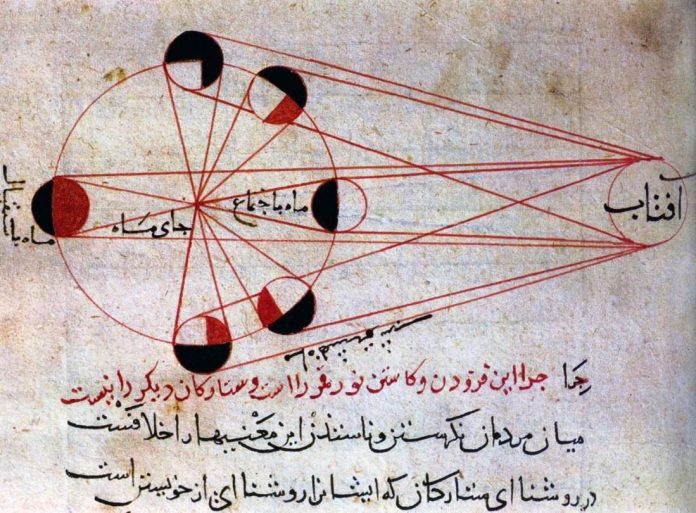 افتاب
ماه باجتماع
جای ماه
ماه باستقبال
جرا جرا این فزودن و کاستن نور قمر را است و ستارکان دیکر را نیست
میان مردمان نکرستن این معنیها را خلافست
در روشنای ستارکان که ایشانرا روشنای از خویشتن است